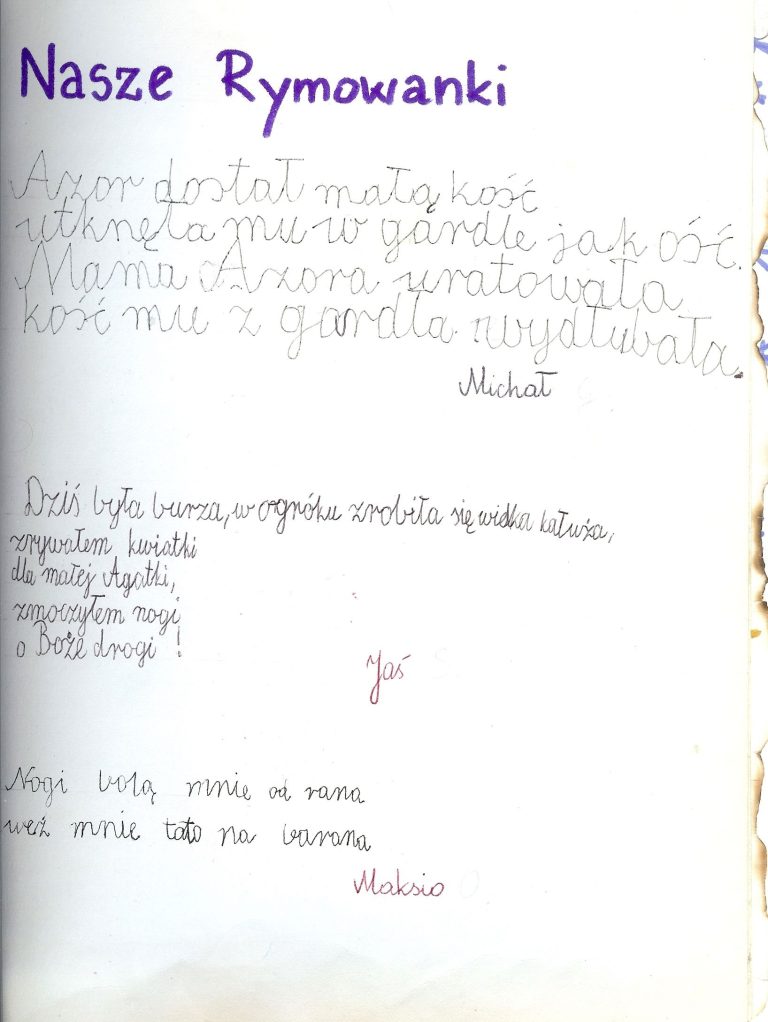 Nasze Rymowanki
Azor dostał małą kość
utknęła mu w gardle jak ość.
Mama Azora uratowała
kość mu z gardła wydłubała.
Michał
Dziś była burza, w ogróku zrobiła się wielka kałuża,
zrywałem kwiatki
dla małej Agatki,
zmoczyłem nogi
o Boże drogi !
Jaś
Nogi bolą mnie od rana
weź mnie tato na barana
Maksio